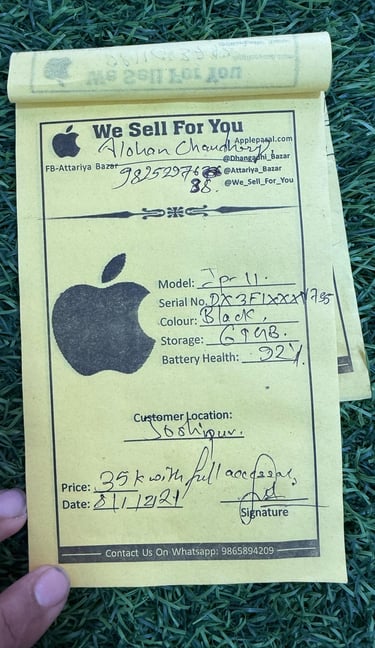 We Sell For You
Alohan Chaudhary
Applepasal.com
@Dhangadhi_Bazar
FB-Attariya Bazar
@Attariya_Bazar
@We_Sell_For_You
88.
Model: Ipr 11.
Serial No.
Colour: Black.
Storage: 64GB.
Battery Health: 92%
Customer Location:
Joshipur.
Price: 35k with full accessary,
Date: 8/1/2121
Signature
Contact Us On Whatsapp: 9865894209